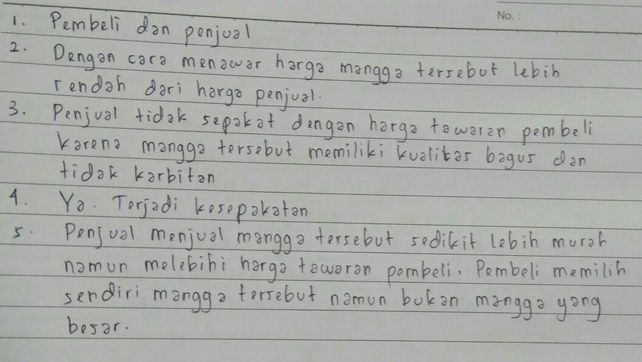 No. :
1. Pembeli dan penjual
2. Dengan cara menawar harga mangga tersebut lebih
rendah dari harga penjual.
3. Penjual tidak sepakat dengan harga tawaran pembeli
karena mangga tersebut memiliki kualitas bagus dan
tidak karbitan
4. Ya. Terjadi kesepakatan
5. Penjual menjual mangga tersebut sedikit lebih murah
namun melebihi harga tawaran pembeli. Pembeli memilih
sendiri mangga tersebut namun bukan mangga yang
besar.